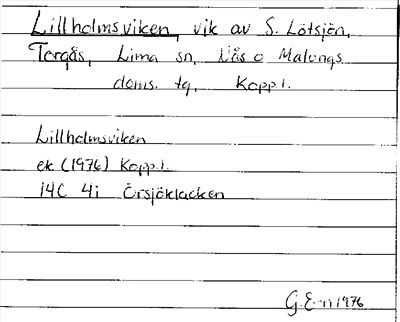 Lillholmsviken, vik av S. Lötsjön,
Torgås, Lima sn, Nås o Malungs
doms. tg, Kopp.l.
Lillholmsviken
ek (1976) Kopp.l.
14C 4i Örsjöklacken
G.E-n 1976